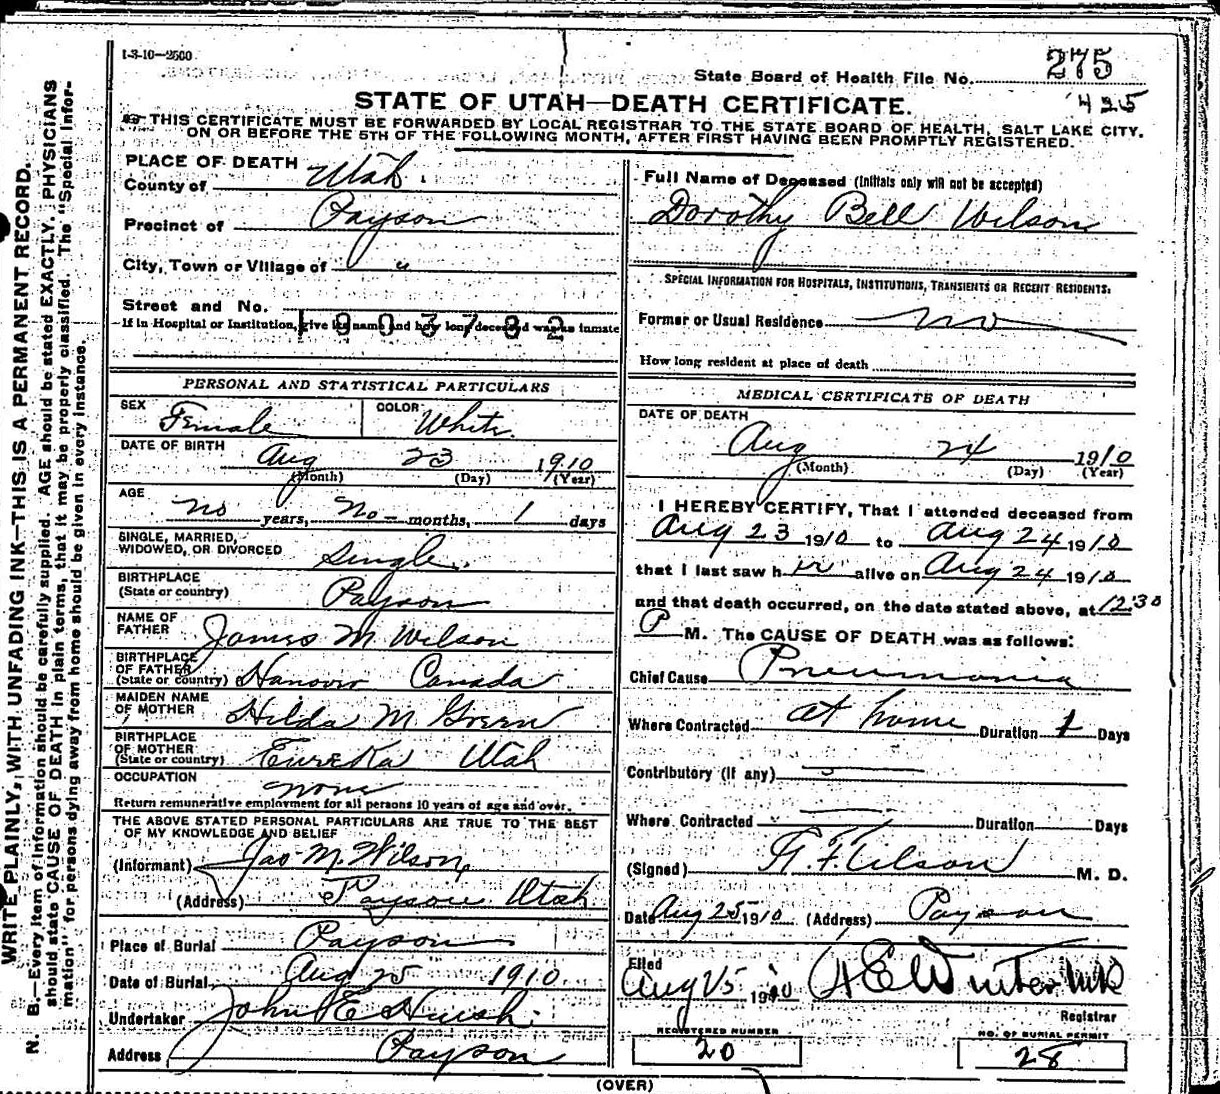 1-3-10—2500
State Board of Health File No. 275
425
STATE OF UTAH—DEATH CERTIFICATE.
THIS CERTIFICATE MUST BE FORWARDED BY LOCAL REGISTRAR TO THE STATE BOARD OF HEALTH, SALT LAKE CITY,
ON OR BEFORE THE 5TH OF THE FOLLOWING MONTH, AFTER FIRST HAVING BEEN PROMPTLY REGISTERED.
PLACE OF DEATH
County of Utah
Precinct of Payson
City, Town or Village of "
Street and No.
If in Hospital or Institution, give its name and how long deceased was an inmate
PERSONAL AND STATISTICAL PARTICULARS
SEX Female COLOR White
DATE OF BIRTH Aug 23 1910
(Month) (Day) (Year)
AGE no years, No months, 1 days
SINGLE, MARRIED,
WIDOWED, OR DIVORCED Single
BIRTHPLACE
(State or country) Payson
NAME OF
FATHER James M Wilson
BIRTHPLACE
OF FATHER
(State or country) Hanover Canada
MAIDEN NAME
OF MOTHER Hilda M Green
BIRTHPLACE
OF MOTHER
(State or country) Eureka Utah
OCCUPATION none
Return remunerative employment for all persons 10 years of age and over.
THE ABOVE STATED PERSONAL PARTICULARS ARE TRUE TO THE BEST
OF MY KNOWLEDGE AND BELIEF
(Informant) Jas M. Wilson,
(Address) Payson Utah
Place of Burial Payson
Date of Burial Aug 25 1910.
Undertaker John E Huish
Address Payson
Full Name of Deceased (Initials only will not be accepted)
Dorothy Bell Wilson
SPECIAL INFORMATION FOR HOSPITALS, INSTITUTIONS, TRANSIENTS OR RECENT RESIDENTS:
Former or Usual Residence no
How long resident at place of death
MEDICAL CERTIFICATE OF DEATH
DATE OF DEATH
Aug 24 1910
(Month) (Day) (Year)
I HEREBY CERTIFY, That I attended deceased from
Aug 23 1910 to Aug 24 1910
that I last saw h er alive on Aug 24 1910
and that death occurred, on the date stated above, at 12:30
P M. The CAUSE OF DEATH was as follows:
Chief Cause Pneumonia
Where Contracted at home Duration 1 Days
Contributory (If any)
Where Contracted Duration Days
(Signed) M. D.
Date Aug 25 1910 (Address) Payson
Filed
Aug 25 1910
Registrar
REGISTERED NUMBER
20
NO. OF BURIAL PERMIT
28
(OVER)
WRITE PLAINLY, WITH UNFADING INK—THIS IS A PERMANENT RECORD.
N. B.—Every item of information should be carefully supplied. AGE should be stated EXACTLY. PHYSICIANS
should state CAUSE OF DEATH in plain terms, that it may be properly classified. The "Special Infor-
mation" for persons dying away from home should be given in every instance.